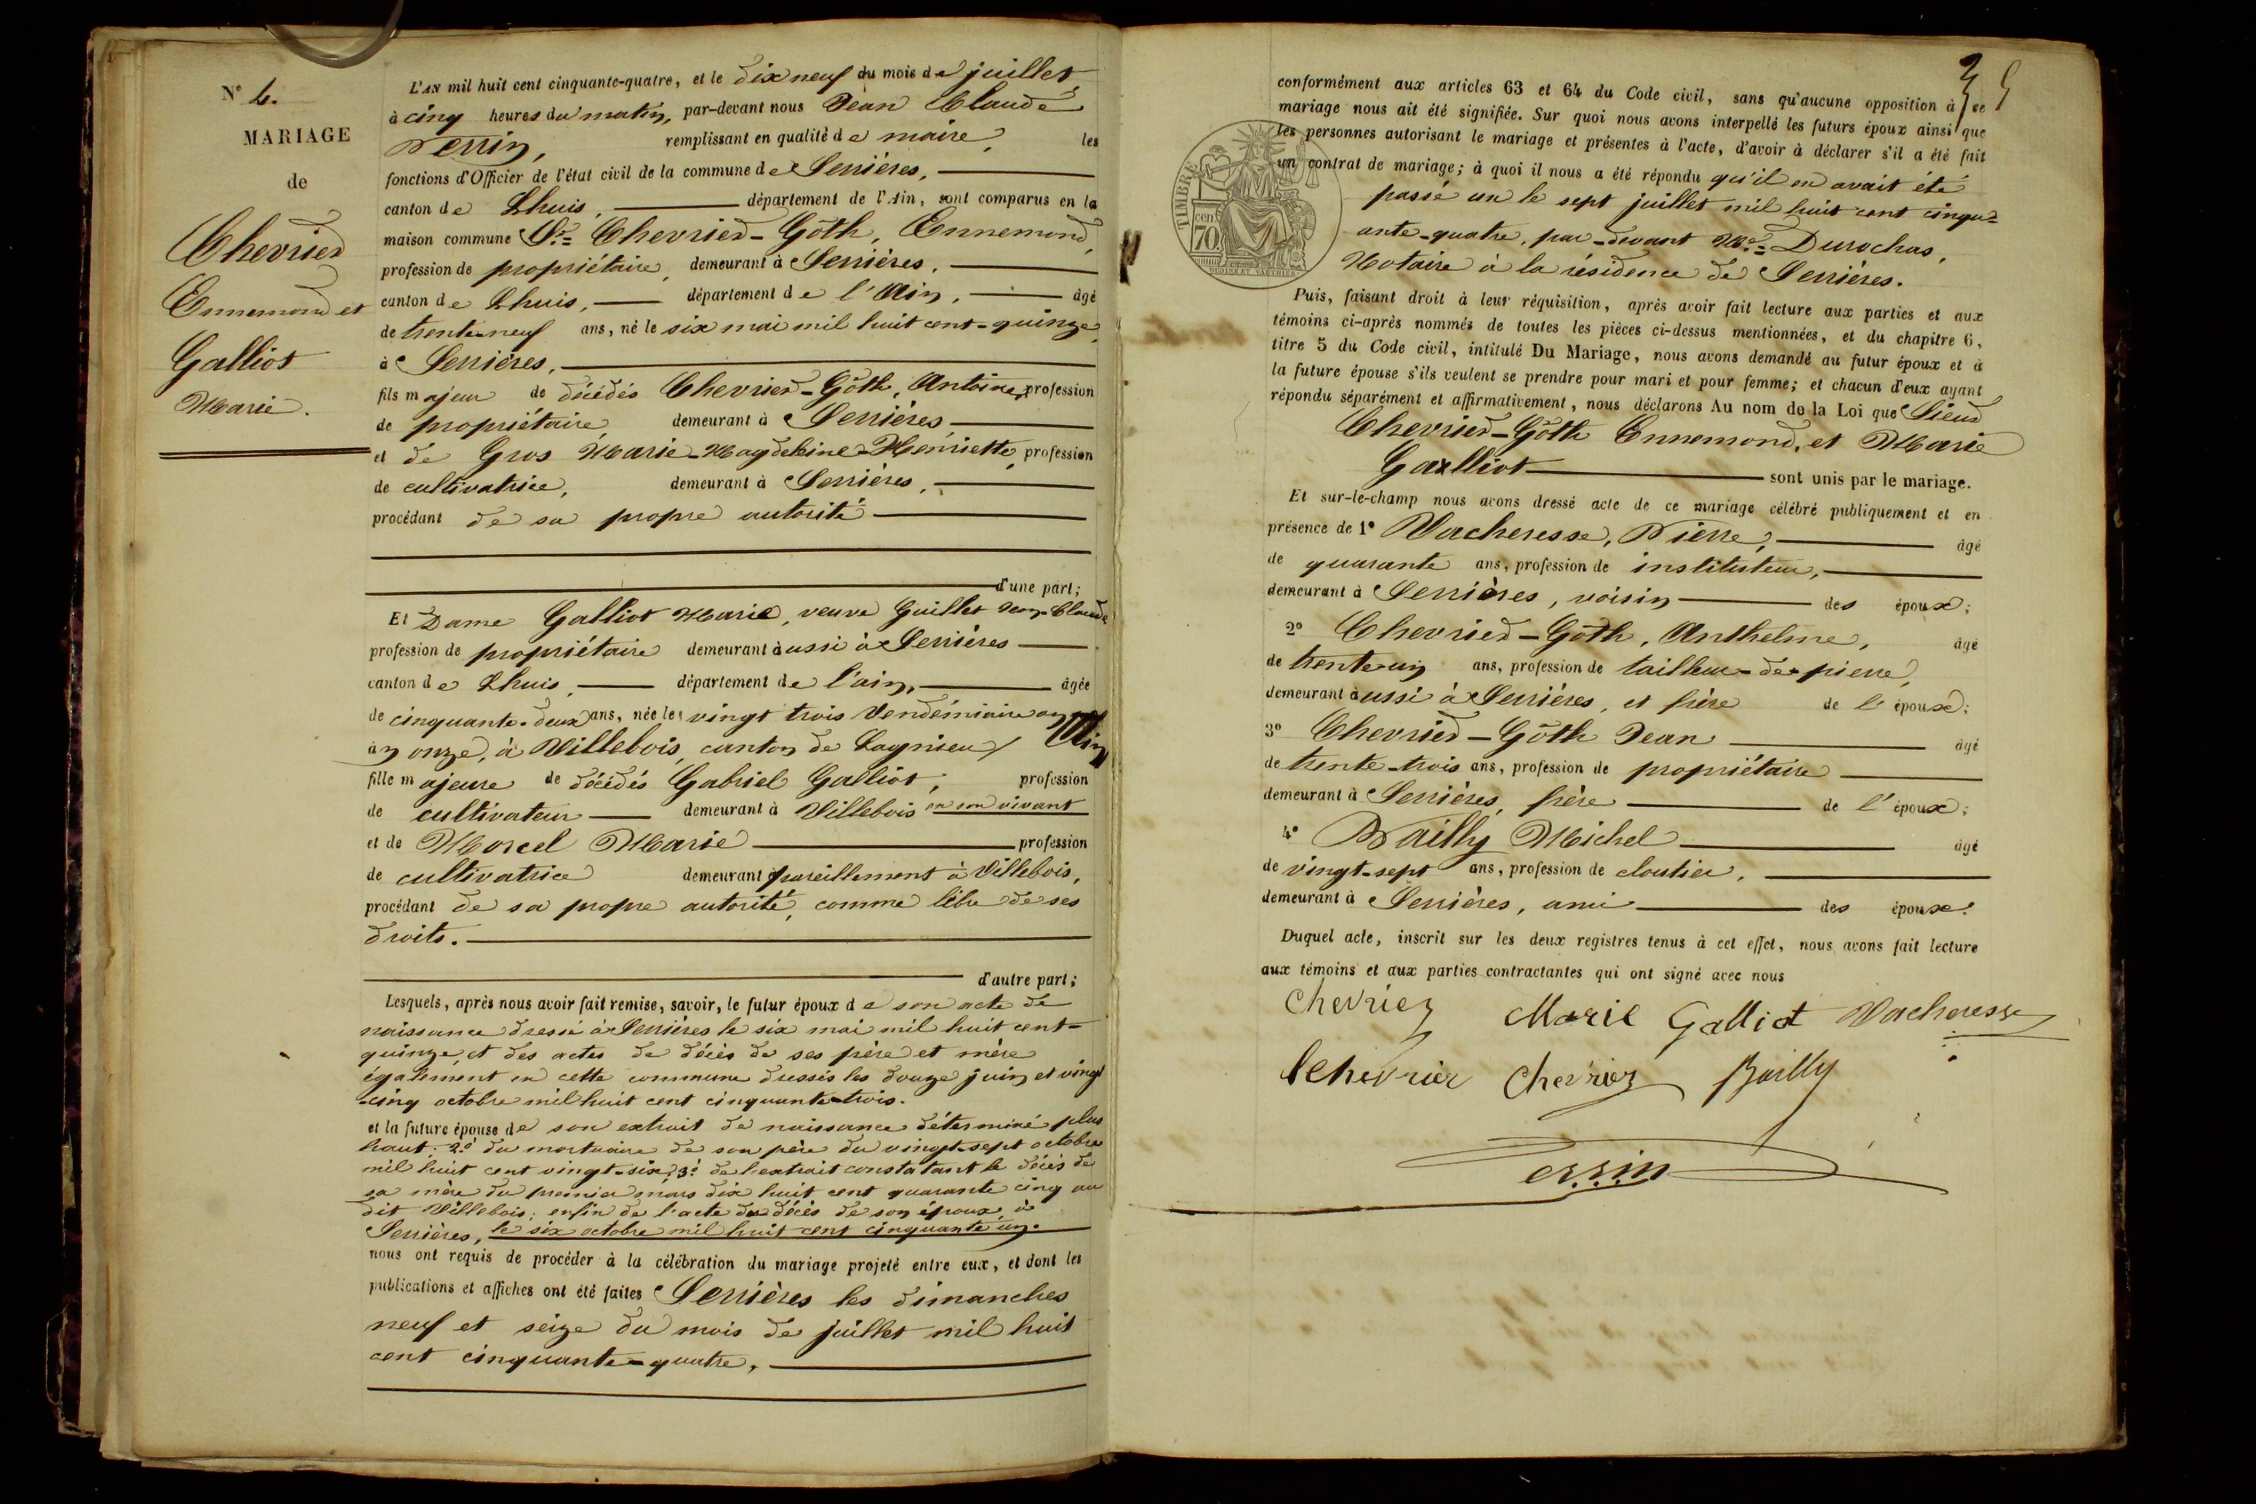 N° 4.
MARIAGE
de
Chevrier
Ennemond et
Galliot
Marie.
L'AN mil huit cent cinquante-quatre, et le dix neuf du mois de juillet
à cinq heures du matin, par-devant nous Jean Claude
Perrin, remplissant en qualité de maire, les
fonctions d'Officier de l'état civil de la commune de Serrières,
canton de Lhuis, département de l'Ain, sont comparus en la
maison commune Sr. Chevrier-Gôth, Ennemond,
profession de propriétaire, demeurant à Serrières,
canton de Lhuis, département de l'Ain, âgé
de trente-neuf ans, né le six mai mil huit cent-quinze,
à Serrières,
fils majeur de décédés Chevrier-Gôth, Antoine, profession
de propriétaire, demeurant à Serrières
et de Gros Marie-Magdeleine-Henriette, profession
de cultivatrice, demeurant à Serrières,
procédant de sa propre autorité
d'une part;
Et Dame Galliot Marie, veuve Guillet Jean-Claude
profession de propriétaire demeurant aussi à Serrières
canton de Lhuis, département de l'ain, âgée
de cinquante-deux ans, née le vingt trois Vendémiaire an
an onze, à Villebois, canton de Lagnieu / Ain
fille majeure de décédés Gabriel Galliot, profession
de cultivateur demeurant à Villebois en son vivant
et de Morcel Marie profession
de cultivatrice demeurant pareillement à Villebois,
procédant de sa propre autorité, comme libre de ses
droits.
d'autre part;
Lesquels, après nous avoir fait remise, savoir, le futur époux de son acte de
naissance dressé à Serrières le six mai mil huit cent-
quinze, et des actes de décès de ses père et mère
également en cette commune dressés les douze juin et vingt
-cinq octobre mil huit cent cinquante-trois.
et la future épouse de son extrait de naissance déterminé plus
haut; 2° du mortuaire de son père du vingt-sept octobre
mil huit cent vingt-six; 3° de l'extrait constatant le décès de
sa mère du premier mars dix huit cent quarante cinq au
dit Villebois; enfin de l'acte de décès de son époux, à
Serrières, le six octobre mil huit cent cinquante un.
nous ont requis de procéder à la célébration du mariage projeté entre eux, et dont les
publications et affiches ont été faites Serrières les dimanches
neuf et seize du mois de juillet mil huit
cent cinquante-quatre,
conformément aux articles 63 et 64 du Code civil, sans qu'aucune opposition à ce
mariage nous ait été signifiée. Sur quoi nous avons interpellé les futurs époux ainsi que
les personnes autorisant le mariage et présentes à l'acte, d'avoir à déclarer s'il a été fait
un contrat de mariage; à quoi il nous a été répondu qu'il en avait été
passé un le sept juillet mil huit cent cinqu-
ante-quatre, par-devant Me. Durochas,
Notaire à la résidence de Serrières.
TIMBRE
cen
70
Puis, faisant droit à leur réquisition, après avoir fait lecture aux parties et aux
témoins ci-après nommés de toutes les pièces ci-dessus mentionnées, et du chapitre 6,
titre 5 du Code civil, intitulé Du Mariage, nous avons demandé au futur époux et à
la future épouse s'ils veulent se prendre pour mari et pour femme; et chacun d'eux ayant
répondu séparément et affirmativement, nous déclarons Au nom de la Loi que Sieur
Chevrier-Gôth Ennemond, et Marie
Galliot sont unis par le mariage.
Et sur-le-champ nous avons dressé acte de ce mariage célébré publiquement et en
présence de 1° Vacheresse, Pierre, âgé
de quarante ans, profession de instituteur,
demeurant à Serrières, voisin des époux;
2° Chevrier-Gôth, Anthelme, âgé
de trente-un ans, profession de tailleur-de-pierre,
demeurant aussi à Serrières, et frère de l'époux;
3° Chevrier-Gôth Jean âgé
de trente-trois ans, profession de propriétaire
demeurant à Serrières, frère de l'époux;
4° Bailly Michel âgé
de vingt-sept ans, profession de cloutier,
demeurant à Serrières, ami des époux.
Duquel acte, inscrit sur les deux registres tenus à cet effet, nous avons fait lecture
aux témoins et aux parties contractantes qui ont signé avec nous
chevrier Marie Galliot Vacheresse
Chevrier chevrier Bailly
Perrin